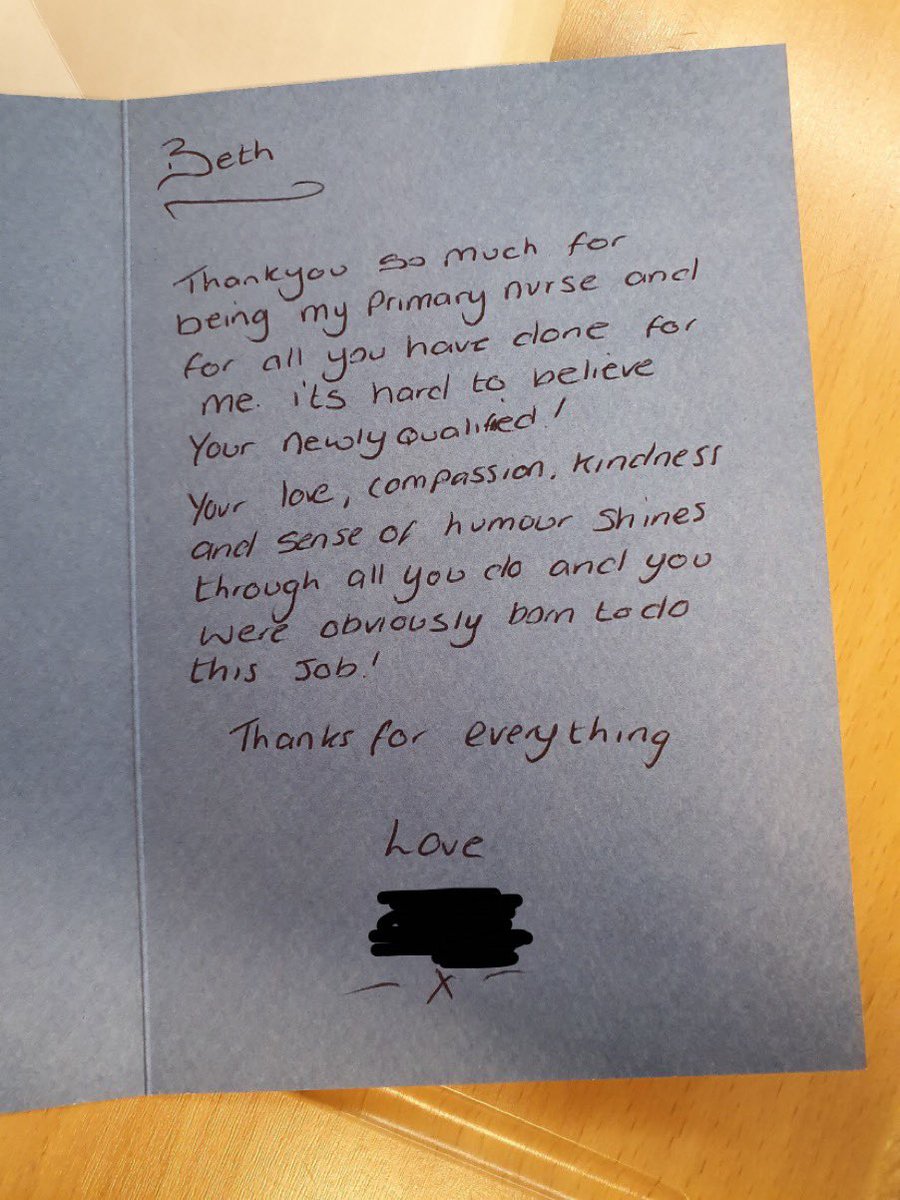 Beth
Thankyou so much for
being my Primary nurse and
for all you have done for
me. it's hard to believe
Your newly qualified!
Your love, compassion, kindness
and sense of humour shines
through all you do and you
were obviously born to do
this Job!
Thanks for everything
Love
X